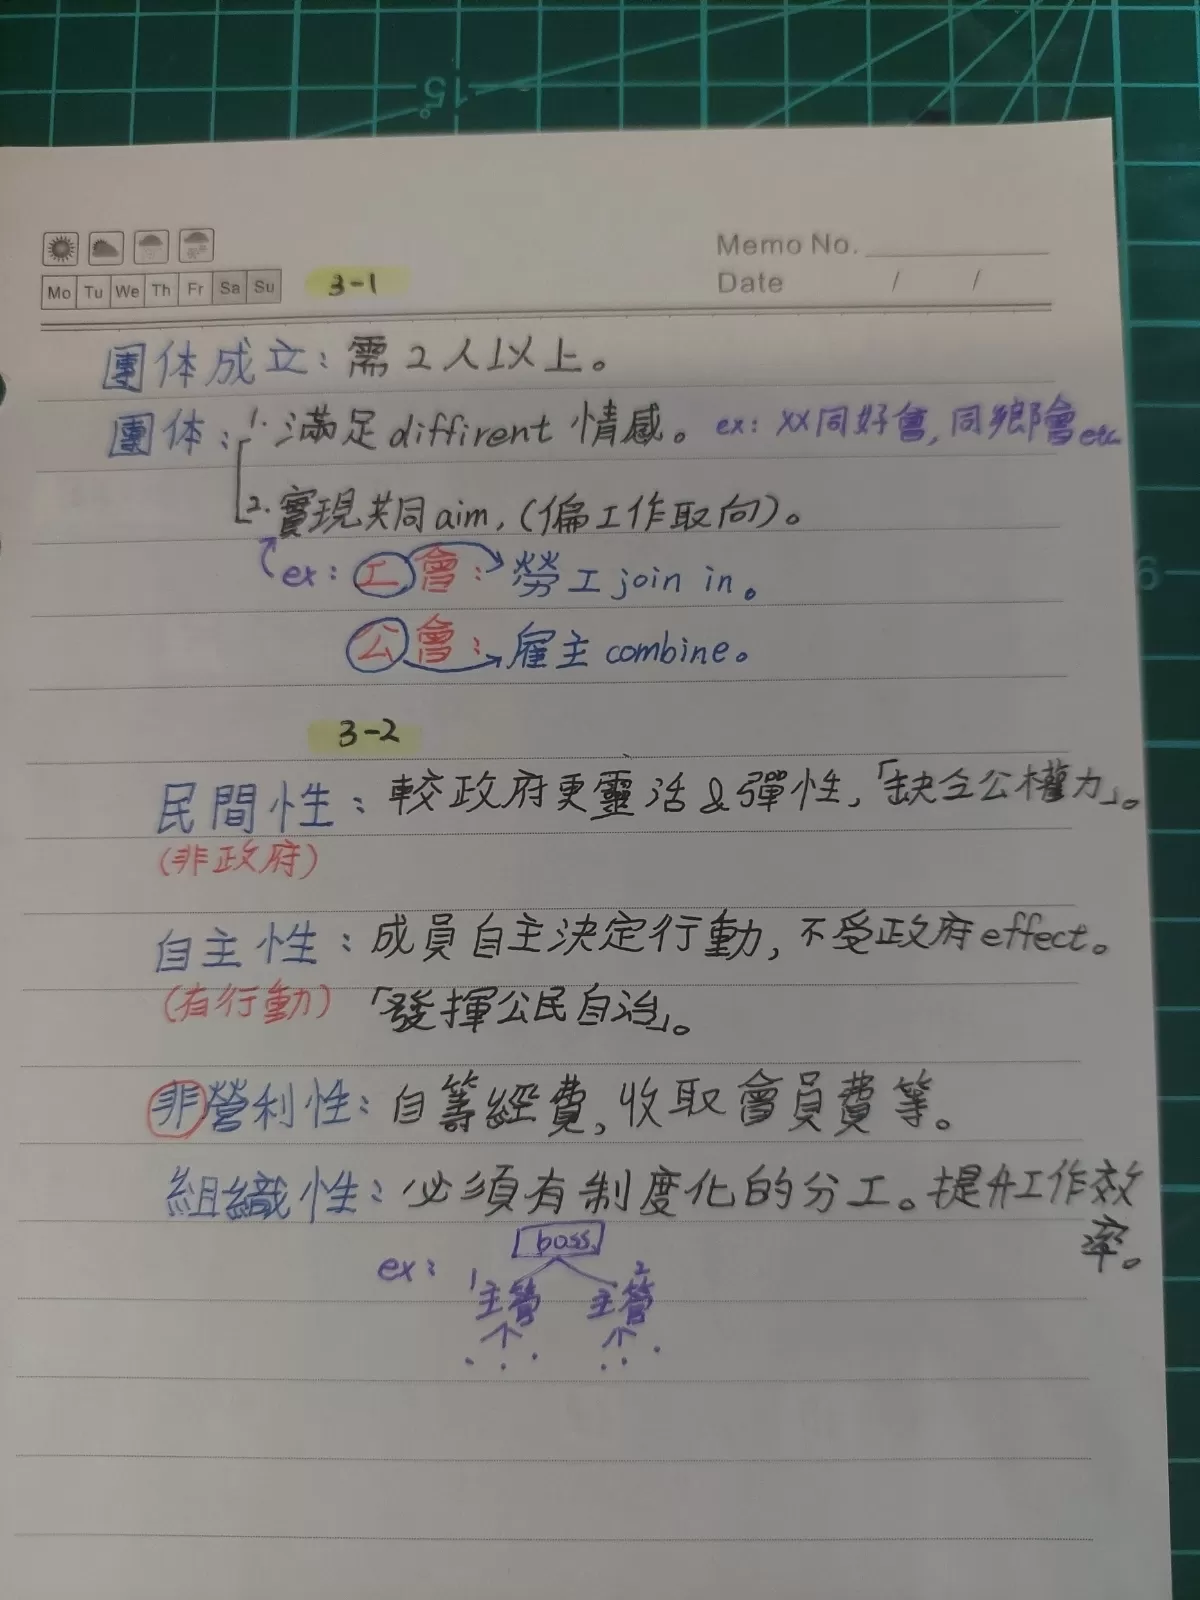 15°
Memo No.
Mo Tu We Th Fr Sa Su
3-1
Date / /
團体成立：需2人以上。
團体：1.滿足diffirent情感。ex：XX同好會,同鄉會etc
2.實現共同aim,(偏工作取向)。
ex：工會：勞工join in。
6
公會：雇主combine。
3-2
民間性：較政府更靈活&彈性,「缺仝公權力」。
(非政府)
自主性：成員自主決定行動,不受政府effect。
(有行動)「發揮公民自治」。
非營利性：自籌經費,收取會員費等。
組織性：必須有制度化的分工。提升工作效
率。
boss
ex：1主管 2主管